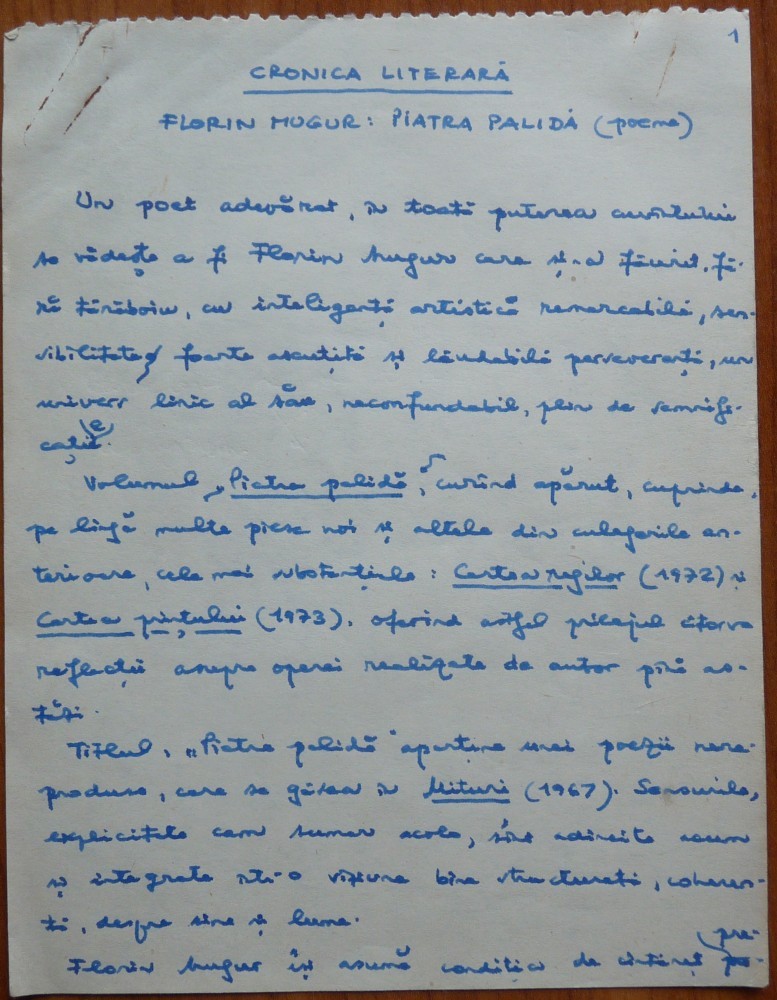 1
CRONICA LITERARĂ
FLORIN MUGUR: PIATRA PALIDĂ (poeme)
Un poet adevărat, în toată puterea cuvîntului
se vădește a fi Florin Mugur care și-a făurit, fă-
ră tărăboiu, cu inteligență artistică remarcabilă, sen-
sibilitate foarte ascuțită și lăudabilă perseverență, un
univers liric al său, neconfundabil, plin de semnifi-
cații.
Volumul „Piatra palidă", curînd apărut, cuprinde,
pe lîngă multe piese noi și altele din culegerile an-
terioare, cele mai substanțiale: Cartea regilor (1972) și
Cartea prințului (1973). oferind astfel prilejul cîtorva
reflecții asupra operei realizate de autor pînă as-
tăzi.
Titlul, „Piatra palidă" aparține unei poezii nere-
produse, care se găsea în Mituri (1967). Sensurile,
explicitate cam sumar acolo, sînt adîncite acum
și integrate într-o viziune bine structurată, coeren-
tă, despre sine și lume.
Florin Mugur își asumă condiția de cîntăreț pre-